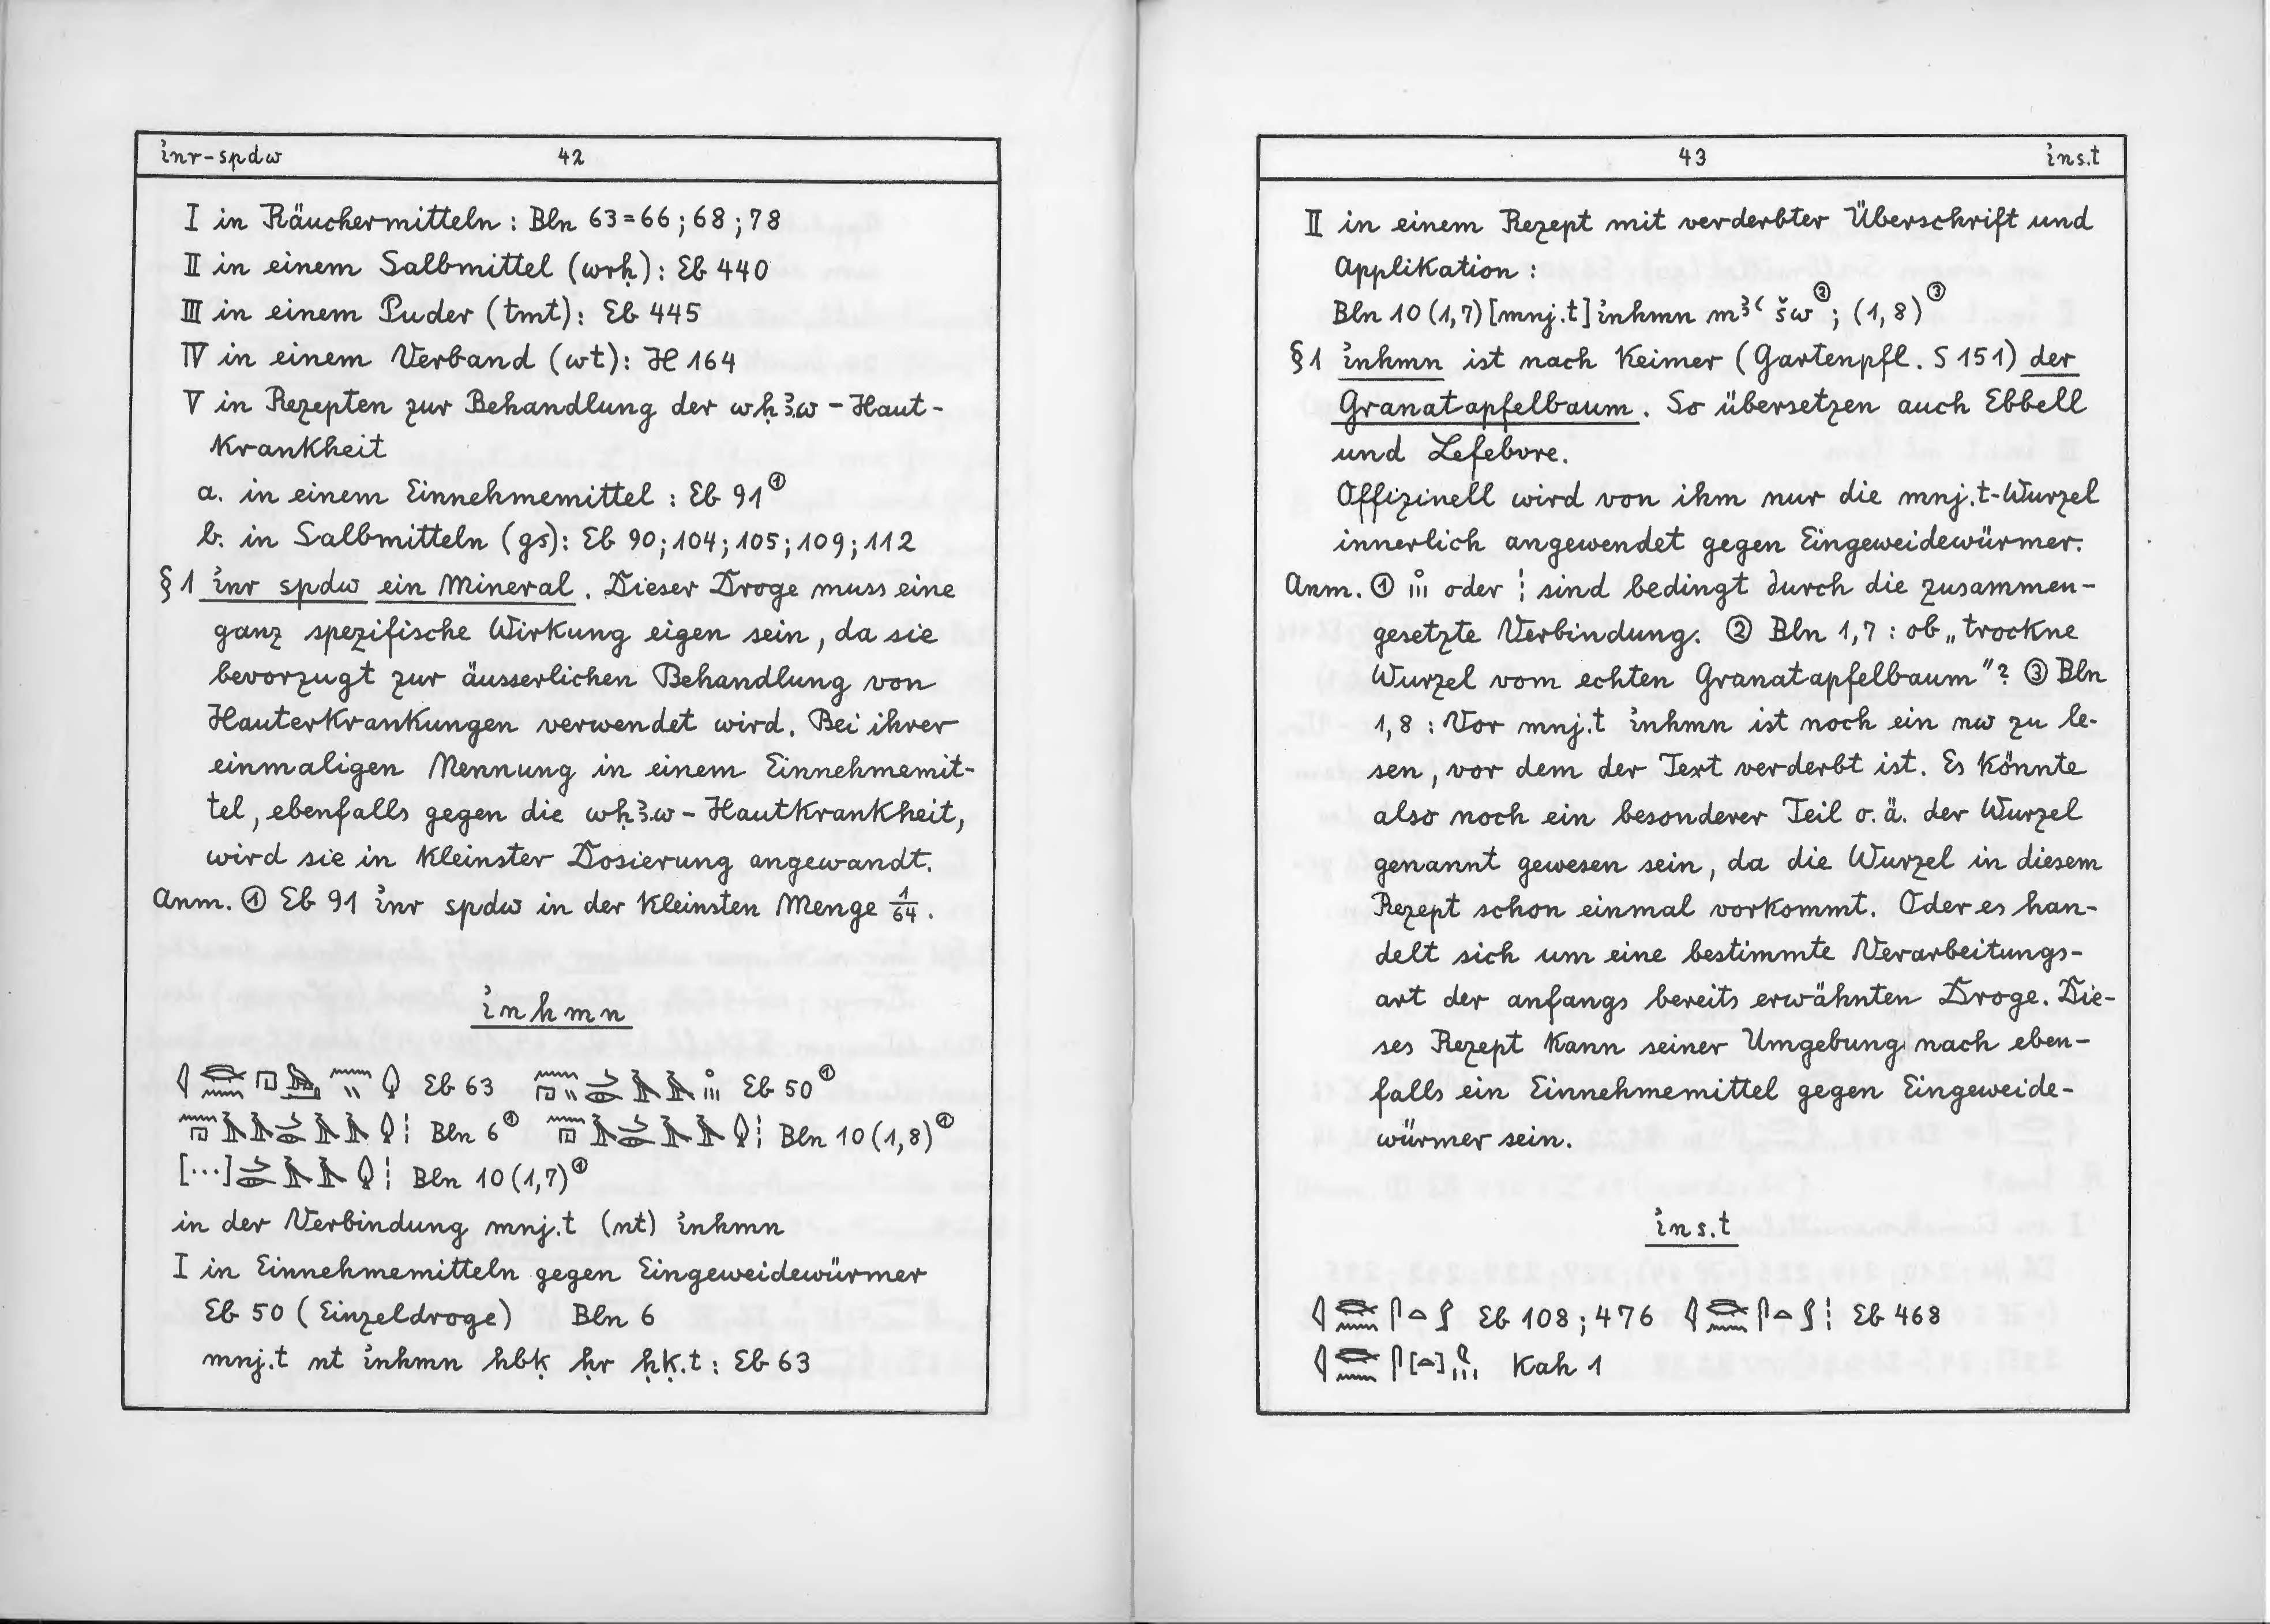 i҆nr-spdw 42
I in Räuchermitteln : Bln 63=66 ; 68 ; 78
II in einem Salbmittel (wrḥ) : Eb 440
III in einem Puder (tmt) : Eb 445
IV in einem Verband (wt) : H 164
V in Rezepten zur Behandlung der wḥꜣ.w - Haut-
krankheit
a. in einem Einnehmemittel : Eb 91①
b. in Salbmitteln (gs) : Eb 90 ; 104 ; 105 ; 109 ; 112
§ 1 i҆nr spdw ein Mineral . Dieser Droge muss eine
ganz spezifische Wirkung eigen sein , da sie
bevorzugt zur äusserlichen Behandlung von
Hauterkrankungen verwendet wird . Bei ihrer
einmaligen Nennung in einem Einnehmemit-
tel , ebenfalls gegen die wḥꜣ.w - Hautkrankheit ,
wird sie in kleinster Dosierung angewandt .
Anm. ① Eb 91 i҆nr spdw in der kleinsten Menge 1/64 .
i҆nhmn
Eb 63 Eb 50①
Bln 6① Bln 10 (1,8)①
[...] Bln 10 (1,7)①
in der Verbindung mnj.t (nt) i҆nhmn
I in Einnehmemitteln gegen Eingeweidewürmer
Eb 50 (Einzeldroge) Bln 6
mnj.t nt i҆nhmn hbḳ ḥr ḥḳ.t : Eb 63
43 i҆ns.t
II in einem Rezept mit verderbter Überschrift und
Applikation :
Bln 10 (1,7) [mnj.t] i҆nhmn mꜣꜥ šw② ; (1,8)③
§ 1 i҆nhmn ist nach Keimer (Gartenpfl. S 151) der
Granatapfelbaum . So übersetzen auch Ebbell
und Lefebvre .
Offizinell wird von ihm nur die mnj.t-Wurzel
innerlich angewendet gegen Eingeweidewürmer .
Anm. ① oder sind bedingt durch die zusammen-
gesetzte Verbindung . ② Bln 1,7 : ob „trockne
Wurzel vom echten Granatapfelbaum"? ③ Bln
1,8 : Vor mnj.t i҆nhmn ist noch ein nw zu le-
sen , vor dem der Text verderbt ist . Es könnte
also noch ein besonderer Teil o. ä. der Wurzel
genannt gewesen sein , da die Wurzel in diesem
Rezept schon einmal vorkommt . Oder es han-
delt sich um eine bestimmte Verarbeitungs-
art der anfangs bereits erwähnten Droge . Die-
ses Rezept kann seiner Umgebung nach eben-
falls ein Einnehmemittel gegen Eingeweide-
würmer sein .
i҆ns.t
Eb 108 ; 476 Eb 468
Kah 1